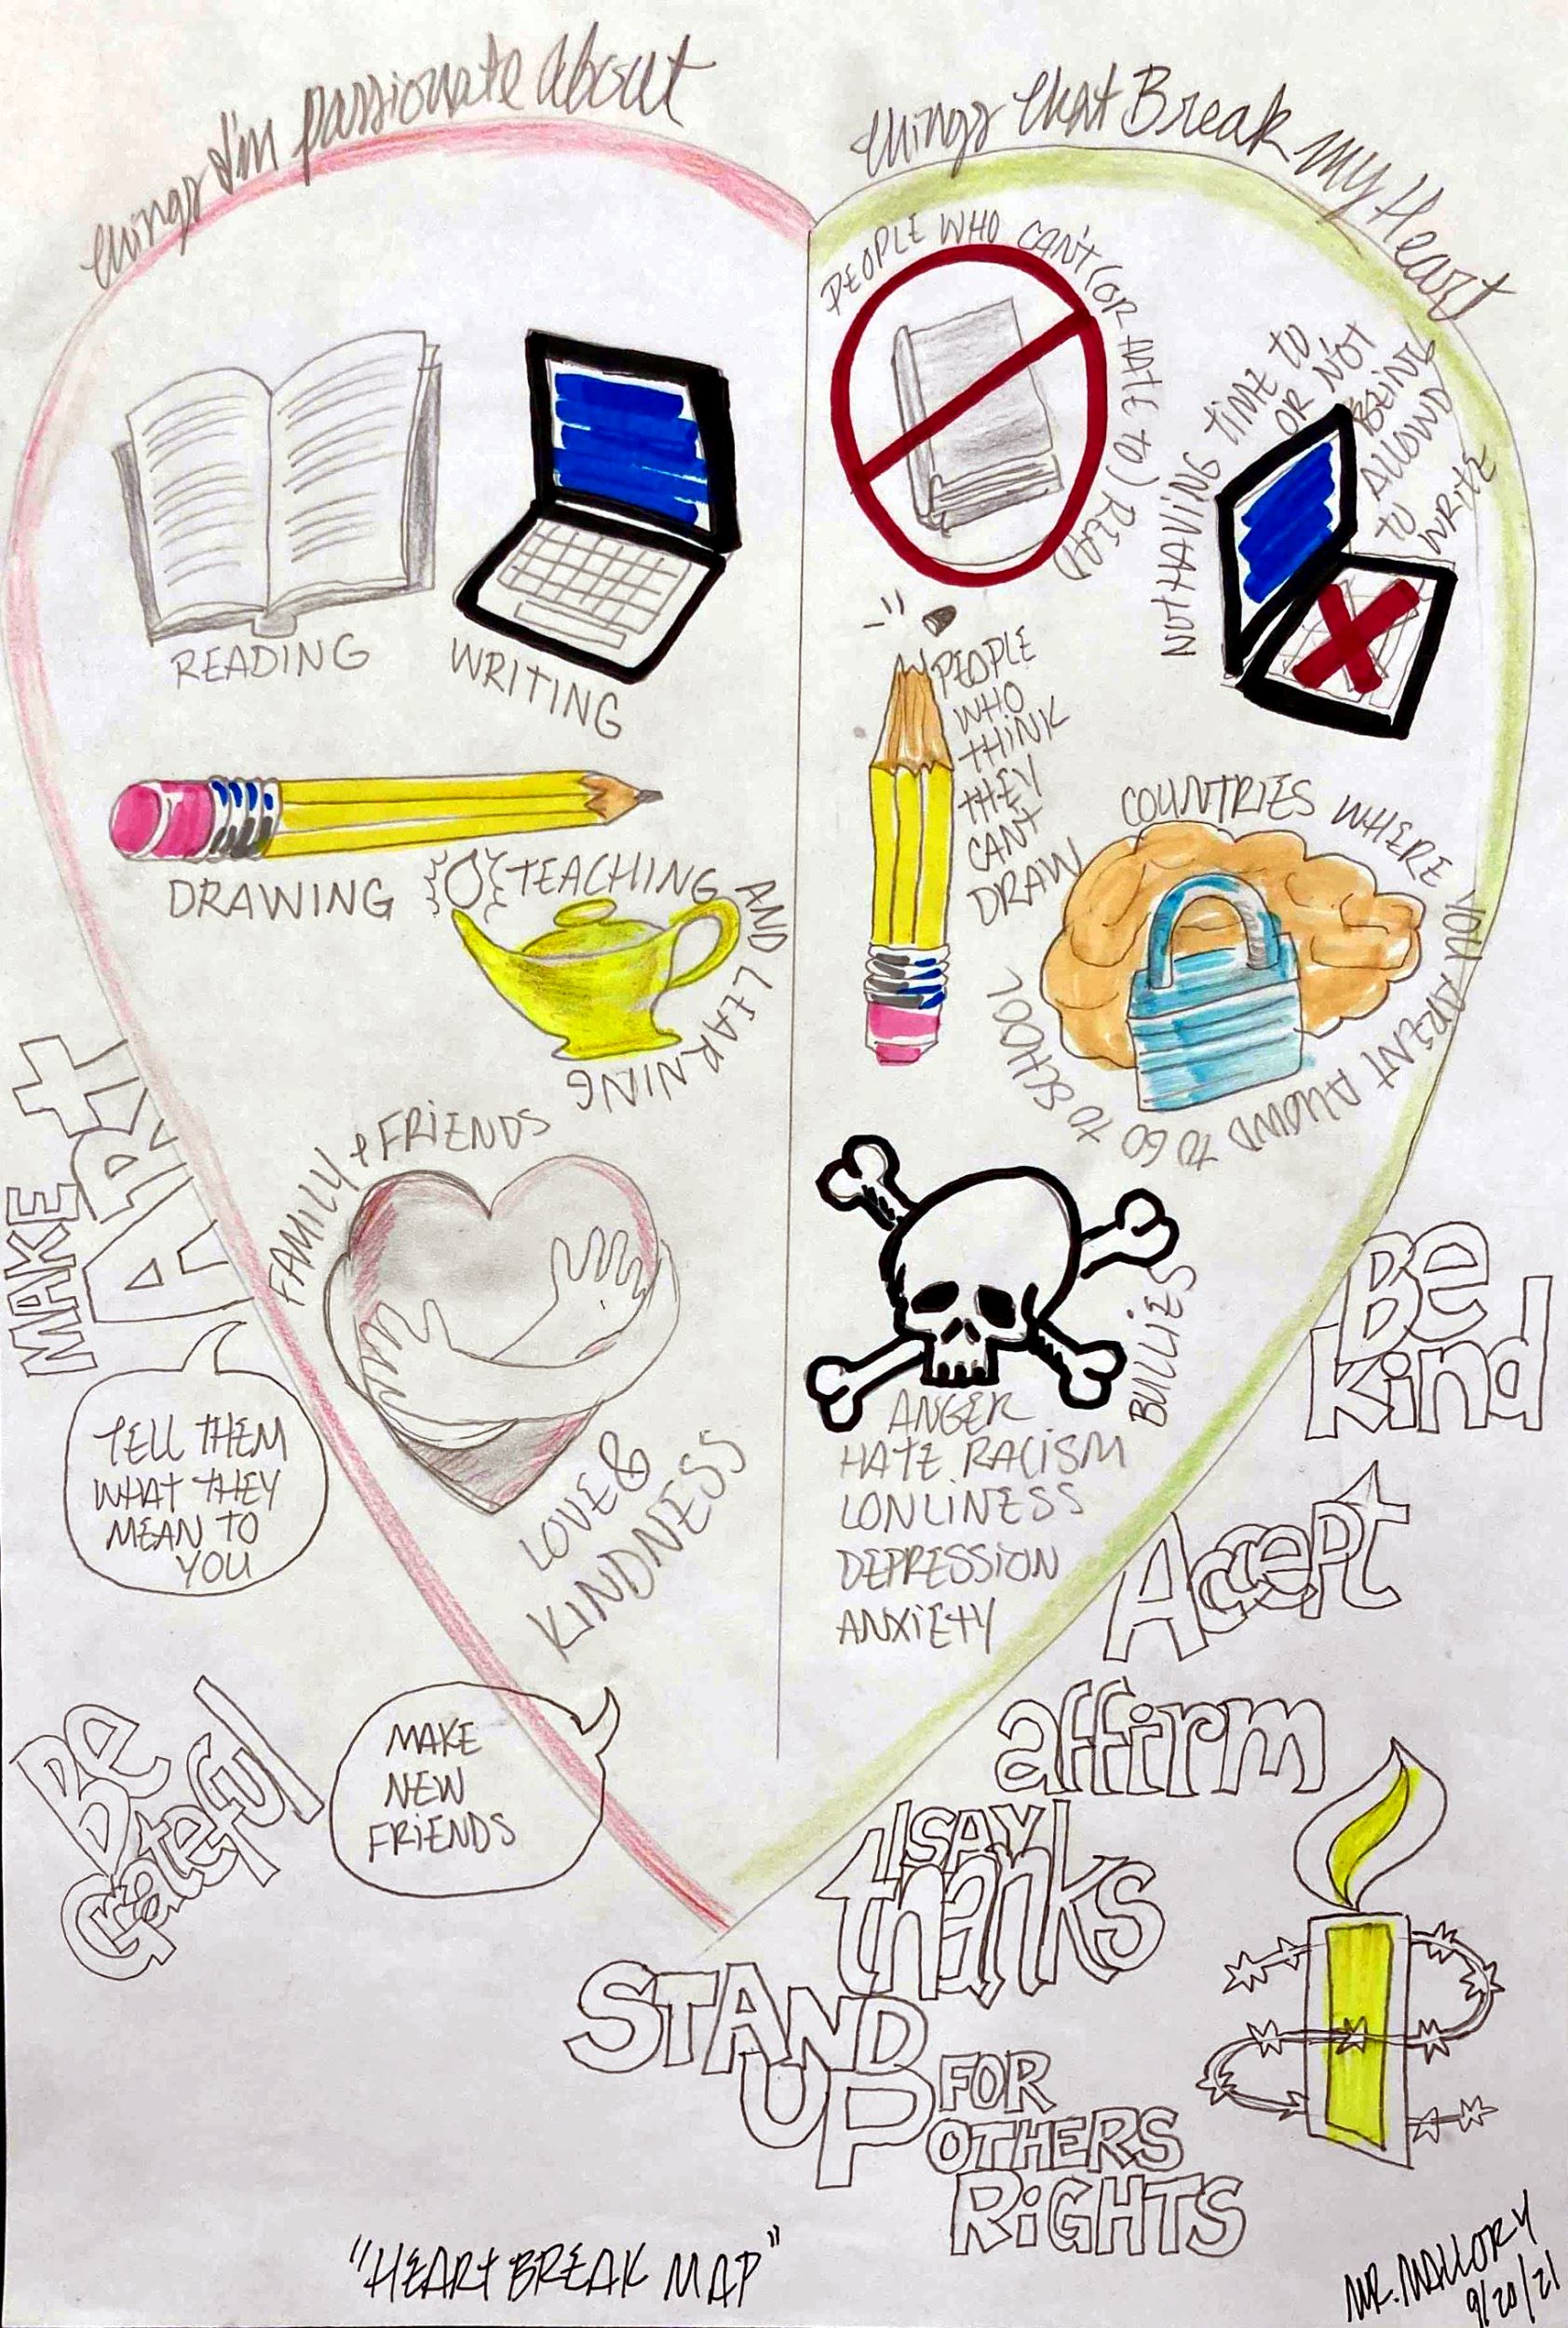 things I'm passionate about
things that Break my Heart
READING
WRITING
DRAWING
TEACHING AND LEARNING
FAMILY + FRIENDS
LOVE &
KINDNESS
PEOPLE WHO CAN'T (OR HATE TO) READ
NOT HAVING TIME TO
OR NOT
BEING
ALLOWD
TO
WRITE
PEOPLE
WHO
THINK
THEY
CAN'T
DRAW
COUNTRIES WHERE YOU ARENT ALLOWD TO GO TO SCHOOL
BULLIES
ANGER
HATE RACISM
LONLINESS
DEPRESSION
ANXIETY
MAKE
ART
TELL THEM
WHAT THEY
MEAN TO
YOU
Be
Grateful
MAKE
NEW
FRIENDS
Be
Kind
Accept
affirm
SAY
thanks
STAND
UP
FOR
OTHERS
RiGHTS
"HEART BREAK MAP"
MR. MALLORY
9/20/21